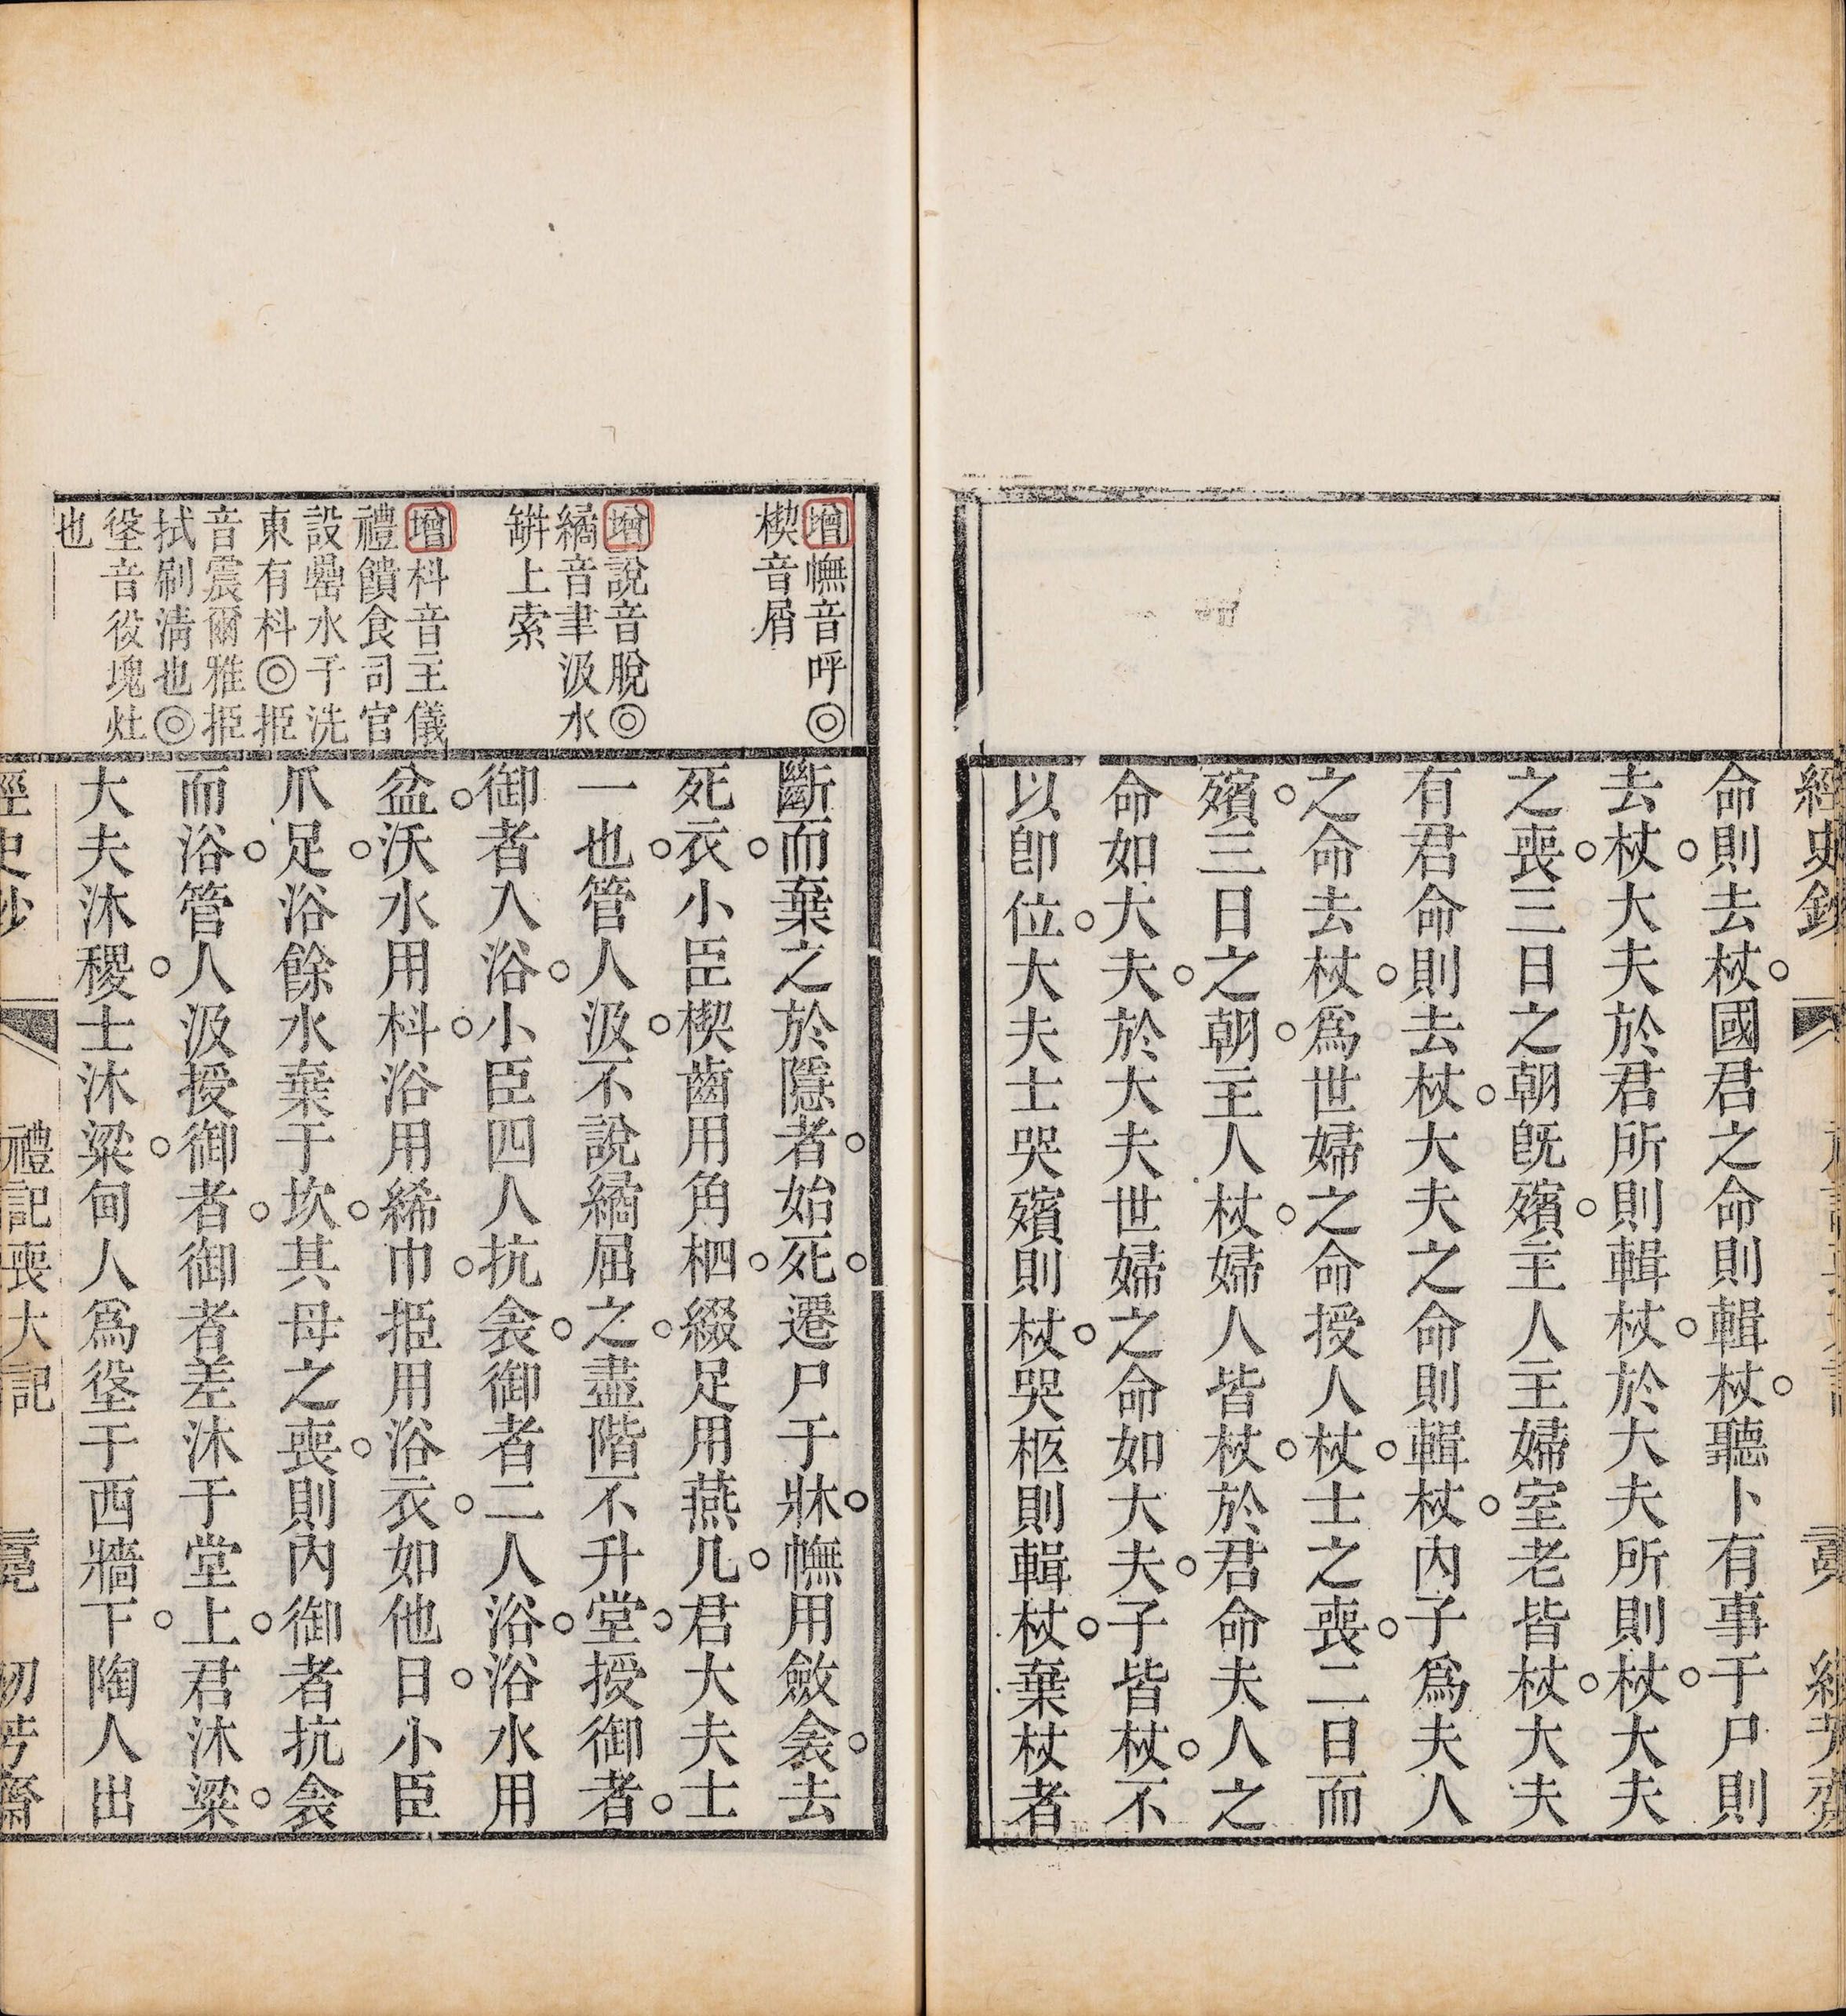 經史鈔
命則去杖。國君之命則輯杖。聽卜有事于尸則
去杖。大夫於君所則輯杖。於大夫所則杖。大夫
之喪。三日之朝旣殯。主人主婦室老皆杖。大夫
有君命則去杖。大夫之命則輯杖。內子爲夫人
之命去杖。爲世婦之命授人杖。士之喪。二日而
殯。三日之朝。主人杖。婦人皆杖。於君命夫人之
命如大夫。於大夫世婦之命如大夫。子皆杖。不
以卽位。大夫士哭殯則杖。哭柩則輯杖。棄杖者
增幠音呼◎
楔音屑
增說音脫◎
繘音聿汲水
缾上索
增枓音主儀
禮饋食司官
設罍水于洗
東有枓◎挋
音震爾雅挋
拭刷淸也◎
垼音役塊灶
也
斷而棄之於隱者。始死。遷尸于牀。幠用斂衾。去
死衣。小臣楔齒用角柶。綴足用燕几。君大夫士
一也。管人汲。不說繘屈之。盡階不升堂。授御者。
御者入浴。小臣四人抗衾。御者二人浴。浴水用
盆。沃水用枓。浴用絺巾。挋用浴衣。如他日。小臣
爪足。浴餘水棄于坎。其母之喪。則內御者抗衾
而浴。管人汲授御者。御者差沐于堂上。君沐粱。
大夫沐稷。士沐粱。甸人爲垼于西牆下。陶人出
經史鈔
禮記喪大記